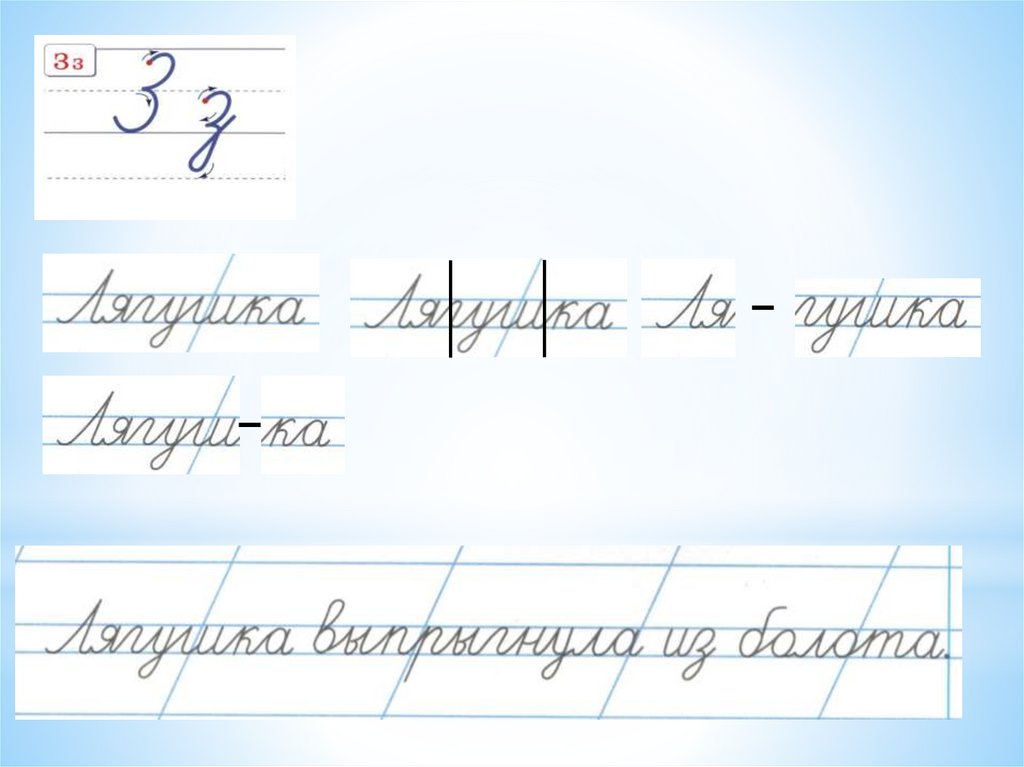 Зз
З з
Лягушка Ля|гуш|ка Ля - гушка
Лягуш-ка
Лягушка выпрыгнула из болота.